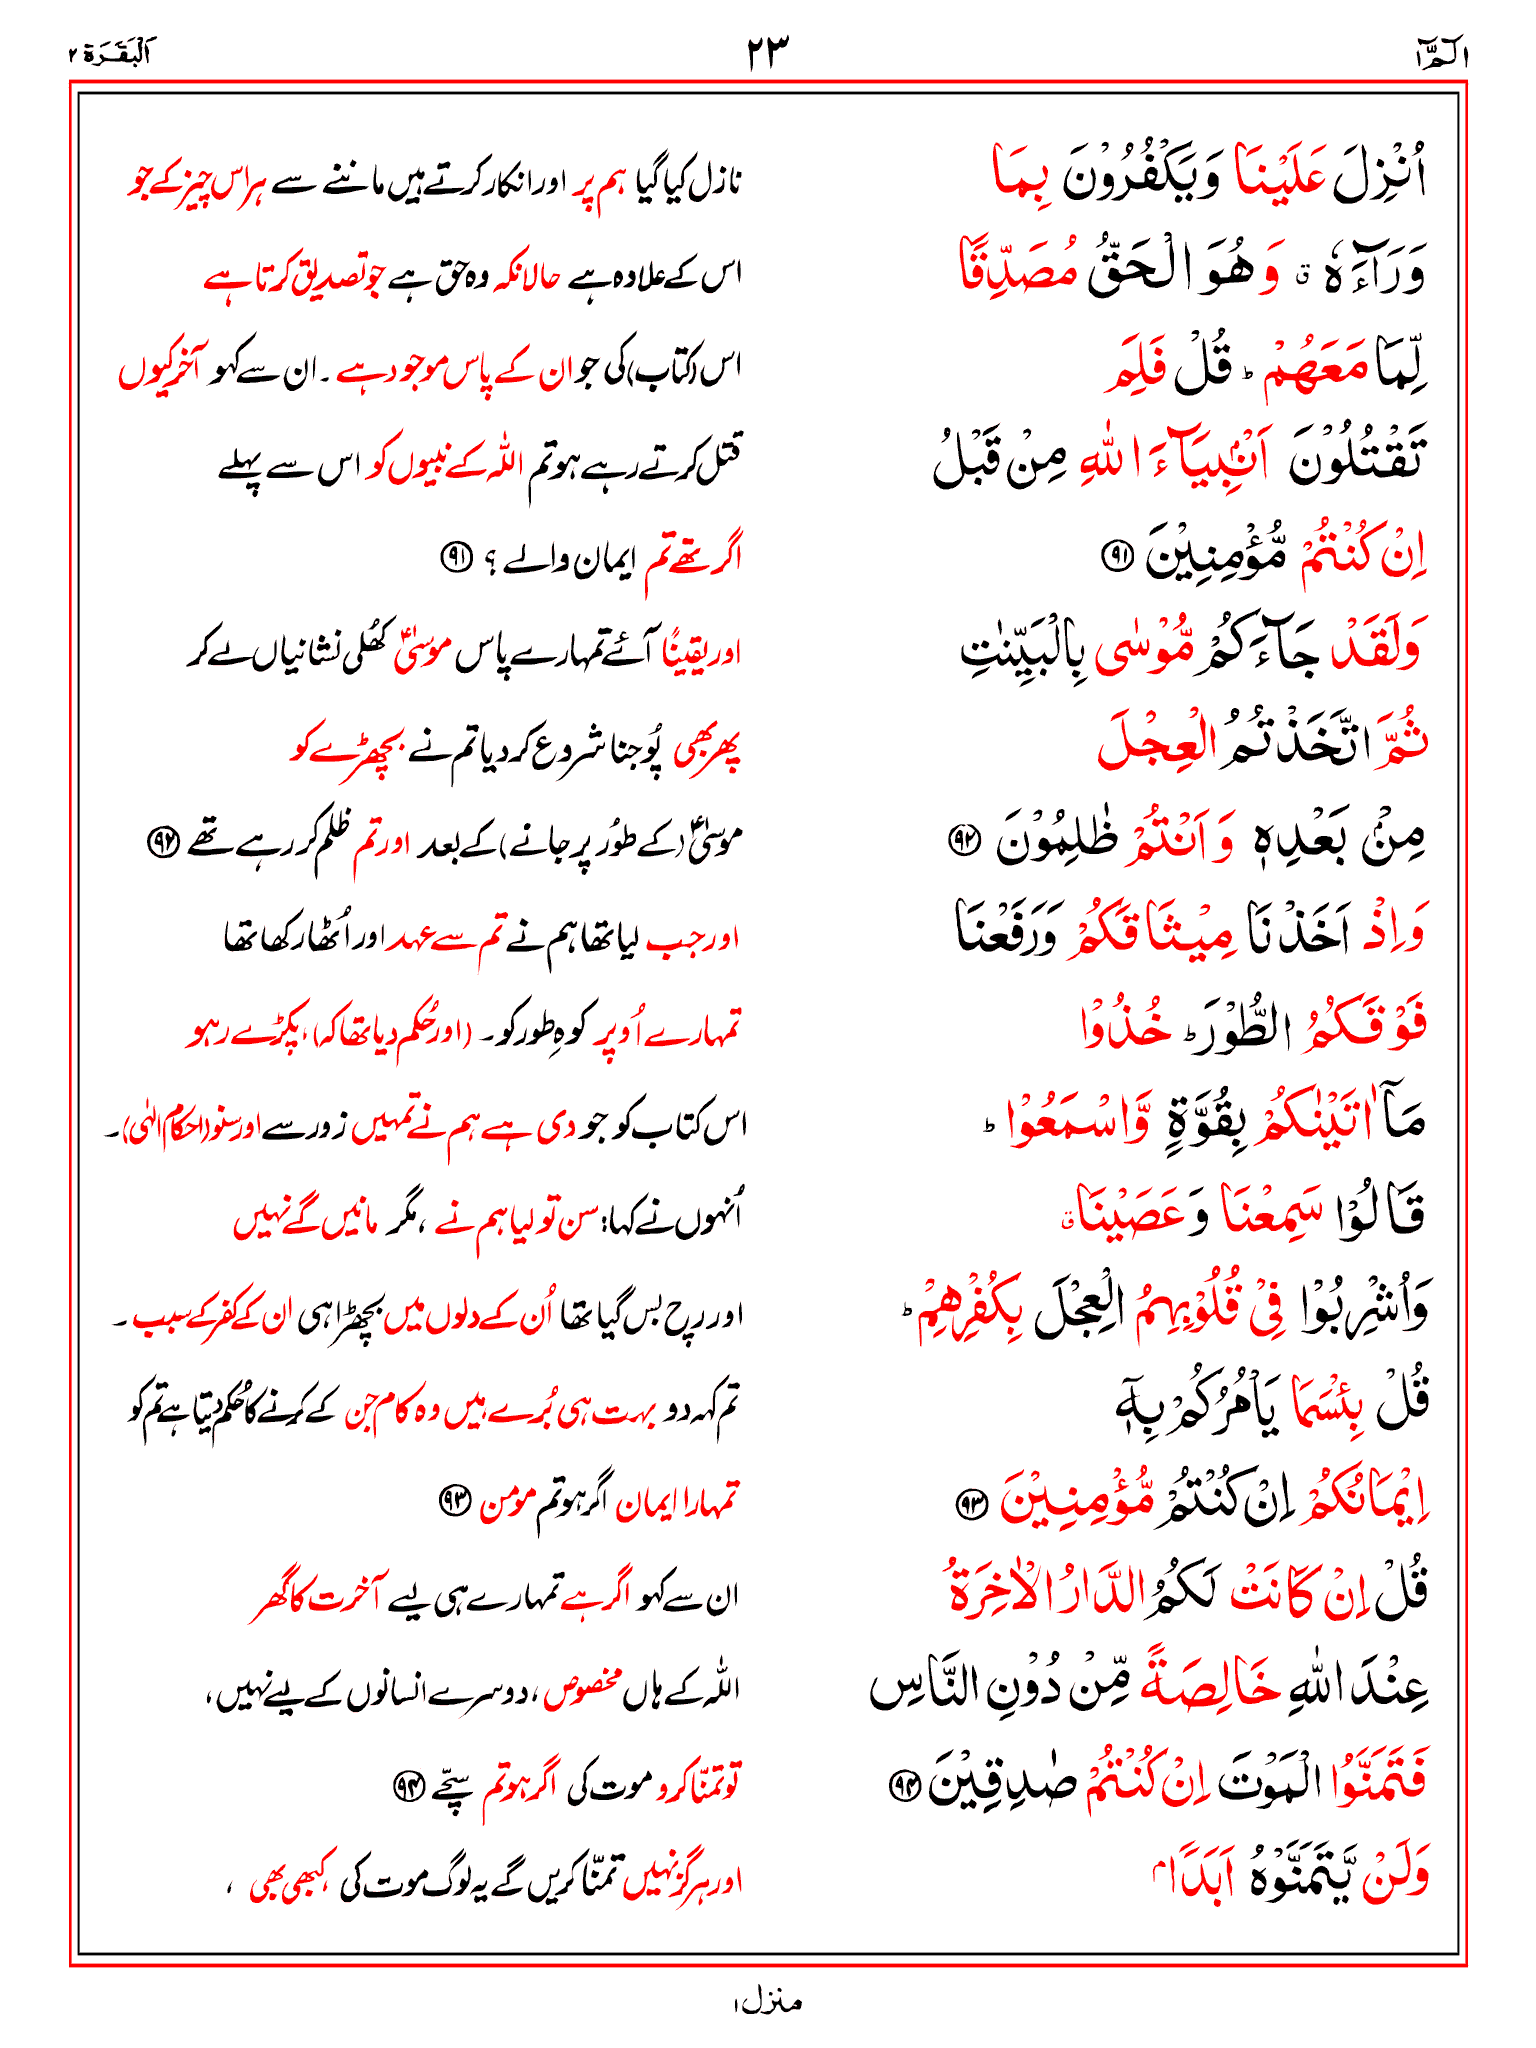 الٓمّٓ ١
٢٣
اَلْبَقَرَة ٢
اُنْزِلَ عَلَيْنَا وَيَكْفُرُوْنَ بِمَا
نازل کیا گیا ہم پر اور انکار کرتے ہیں ماننے سے ہر اس چیز کے جو
وَرَآءَهٗ ۤ وَهُوَ الْحَقُّ مُصَدِّقًا
اس کے علاوہ ہے حالانکہ وہ حق ہے جو تصدیق کرتا ہے
لِّمَا مَعَهُمْ ؕ قُلْ فَلِمَ
اس (کتاب) کی جو ان کے پاس موجود ہے ۔ ان سے کہو آخر کیوں
تَقْتُلُوْنَ اَنْۢبِيَآءَ اللّٰهِ مِنْ قَبْلُ
قتل کرتے رہے ہو تم اللہ کے نبیوں کو اس سے پہلے
اِنْ كُنْتُمْ مُّؤْمِنِيْنَ ﴿٩١﴾
اگر تھے تم ایمان والے ؟ ﴿۹۱﴾
وَلَقَدْ جَآءَكُمْ مُّوْسٰى بِالْبَيِّنٰتِ
اور یقیناً آئے تمہارے پاس موسیٰؑ کھُلی نشانیاں لے کر
ثُمَّ اتَّخَذْتُمُ الْعِجْلَ
پھر بھی پُوجنا شروع کر دیا تم نے بچھڑے کو
مِنْۢ بَعْدِهٖ وَاَنْتُمْ ظٰلِمُوْنَ ﴿٩٢﴾
موسیٰؑ (کے طُور پر جانے) کے بعد اور تم ظلم کر رہے تھے ﴿۹۲﴾
وَاِذْ اَخَذْنَا مِيْثَاقَكُمْ وَرَفَعْنَا
اور جب لیا تھا ہم نے تم سے عہد اور اُٹھا رکھا تھا
فَوْقَكُمُ الطُّوْرَ ؕ خُذُوْا
تمہارے اُوپر کوہِ طور کو ۔ (اور حُکم دیا تھا کہ)، پکڑے رہو
مَآ اٰتَيْنٰكُمْ بِقُوَّةٍ وَّاسْمَعُوْا ؕ
اس کتاب کو جو دی ہے ہم نے تمہیں زور سے اور سنو (احکام الٰہی) ۔
قَالُوْا سَمِعْنَا وَعَصَيْنَا ۤ
اُنہوں نے کہا: سن تو لیا ہم نے ، مگر مانیں گے نہیں
وَاُشْرِبُوْا فِىْ قُلُوْبِهِمُ الْعِجْلَ بِكُفْرِهِمْ ؕ
اور رچ بس گیا تھا اُن کے دلوں میں بچھڑا ہی ان کے کفر کے سبب ۔
قُلْ بِئْسَمَا يَاْمُرُكُمْ بِهٖۤ
تم کہہ دو بہت ہی بُرے ہیں وہ کام جن کے کرنے کا حُکم دیتا ہے تم کو
اِيْمَانُكُمْ اِنْ كُنْتُمْ مُّؤْمِنِيْنَ ﴿٩٣﴾
تمہارا ایمان اگر ہو تم مومن ﴿۹۳﴾
قُلْ اِنْ كَانَتْ لَكُمُ الدَّارُ الْاٰخِرَةُ
ان سے کہو اگر ہے تمہارے ہی لیے آخرت کا گھر
عِنْدَ اللّٰهِ خَالِصَةً مِّنْ دُوْنِ النَّاسِ
اللہ کے ہاں مخصوص ، دوسرے انسانوں کے لیے نہیں ،
فَتَمَنَّوُا الْمَوْتَ اِنْ كُنْتُمْ صٰدِقِيْنَ ﴿٩٤﴾
تو تمنّا کرو موت کی اگر ہو تم سچّے ﴿۹۴﴾
وَلَنْ يَّتَمَنَّوْهُ اَبَدًاۢ
اور ہرگز نہیں تمنّا کریں گے یہ لوگ موت کی ، کبھی بھی ،
منزل ١